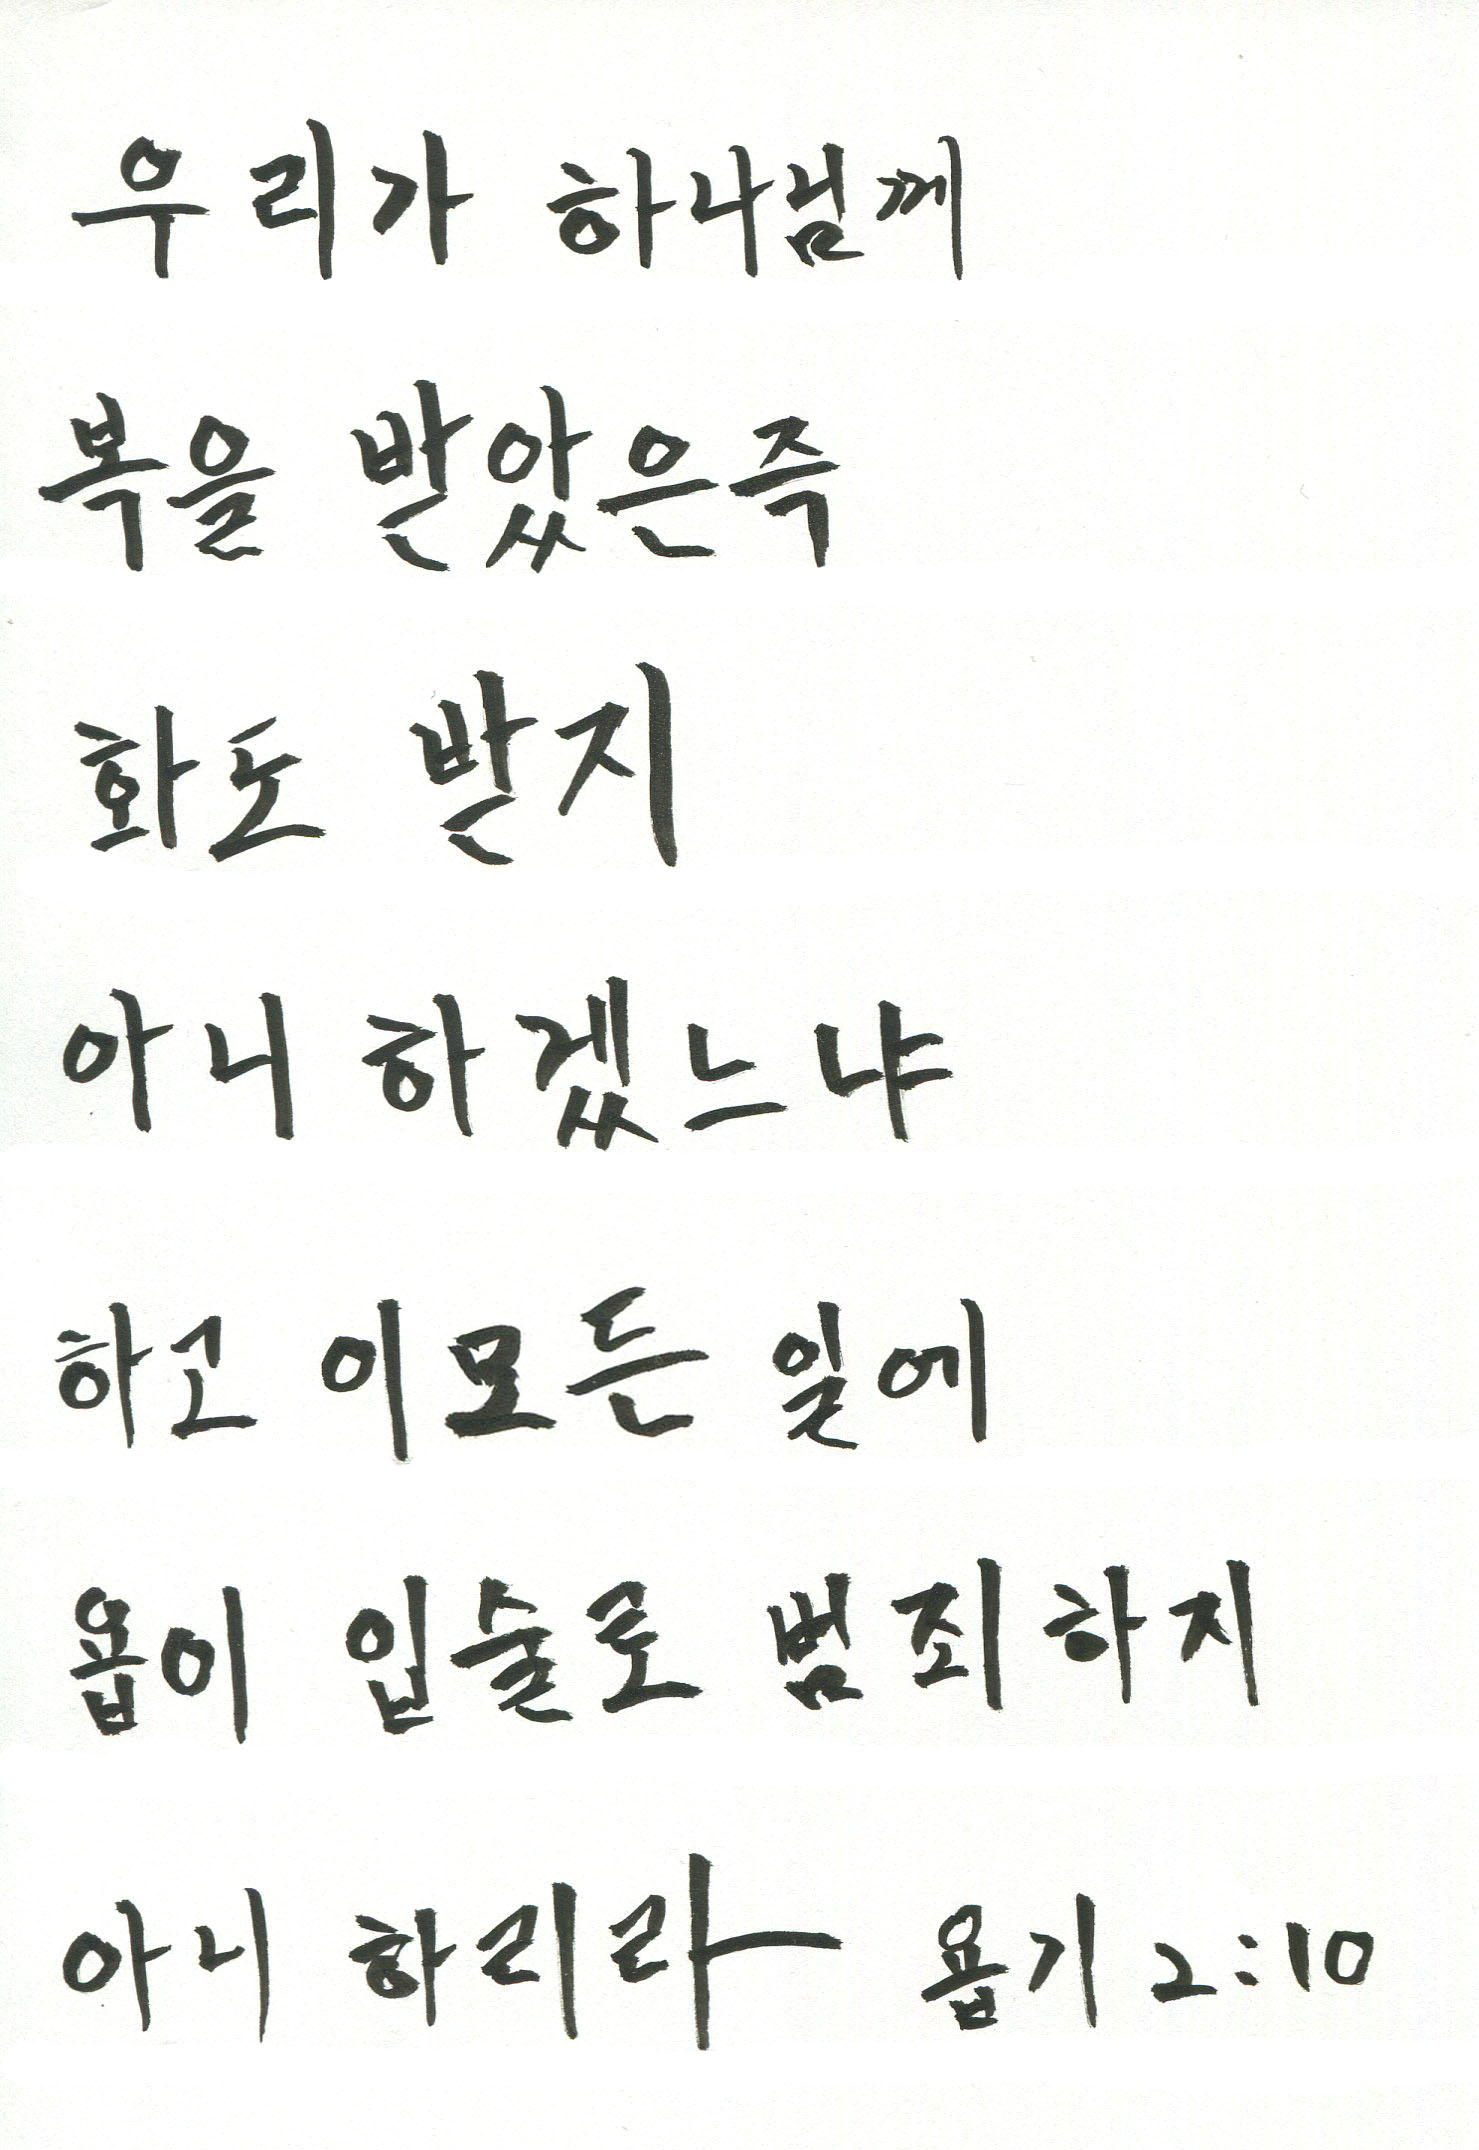 우리가 하나님께
복을 받았은즉
화도 받지
아니 하겠느냐
하고 이모든 일에
욥이 입술로 범죄하지
아니 하리라 욥기 2:10